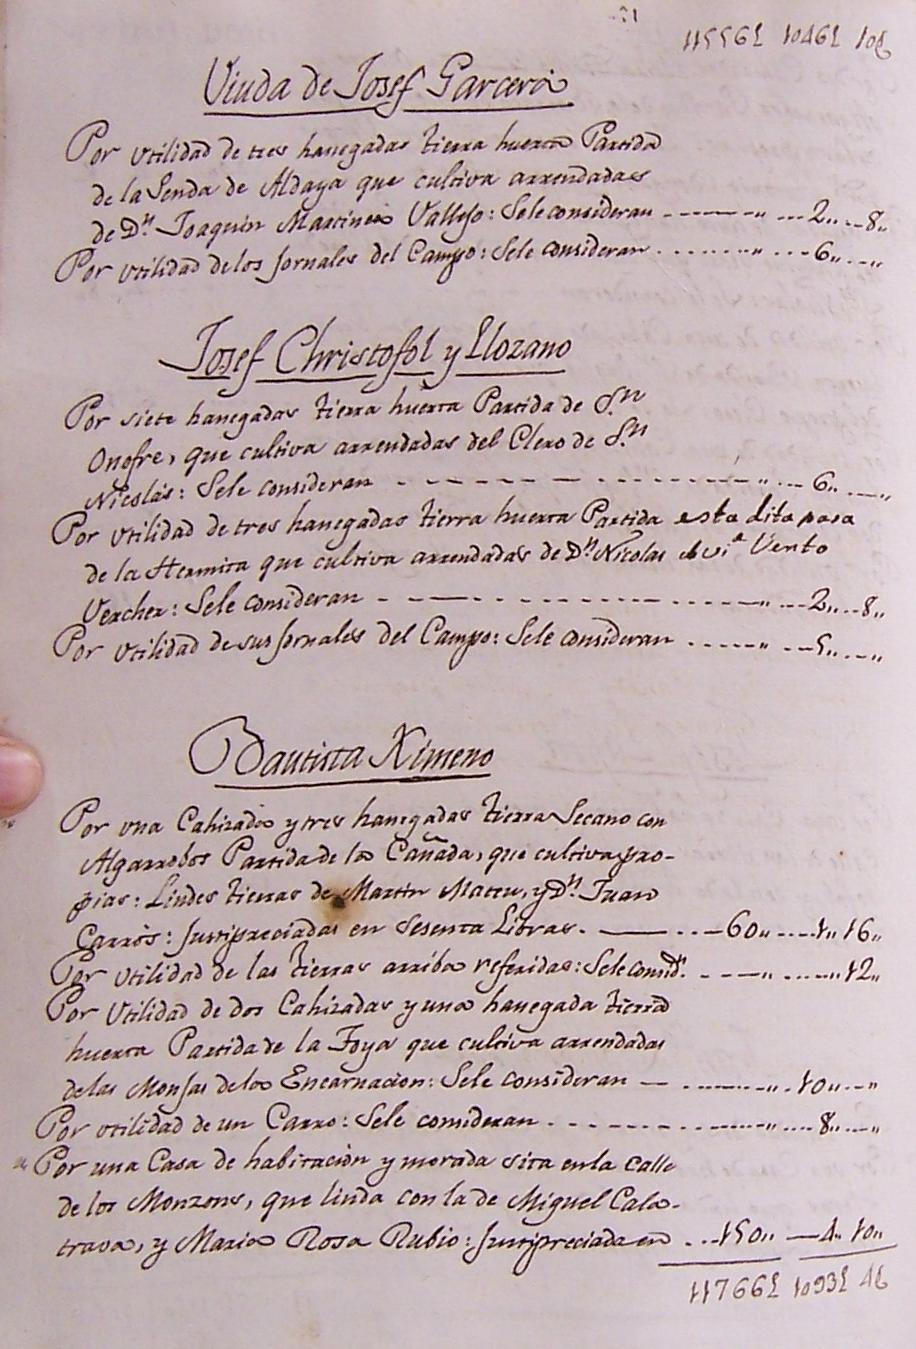 11556£ 1046£ 10$
Viuda de Josef Garcerá
Por vtilidad de tres hanegadas tierra huerta Partida
de la Senda de Aldaya que cultiva arrendadas
de Dn. Joaquin Martinez Vallejo: Sele consideran 2,, 8,,
Por vtilidad de los Jornales del Campo: Sele consideran 6,, ,,
Josef Christofol y Llozano
Por siete hanegadas tierra huerta Partida de Sn.
Onofre, que cultiva arrendadas del Clero de Sn.
Nicolás: Sele consideran 6,, ,,
Por vtilidad de tres hanegadas tierra huerta Partida esta dita pasa
de la Hermita que cultiva arrendadas de Dn. Nicolas Vento
Vercher: Sele consideran 2,, 8,,
Por vtilidad de sus Jornales del Campo: Sele consideran 5,, ,,
Bautista Ximeno
Por vna Cahizada y tres hanegadas tierra Secano con
Algarrobos Partida de la Cañada, que cultiva pro-
pias: Lindes tierras de Martin Mateu, y Dn. Juan
Carrós: Justipreciadas en Sesenta Libras. 60,, 1,, 16,,
Por vtilidad de las tierras arriba referidas: Sele consid. 12,,
Por Vtilidad de dos Cahizadas y una hanegada tierra
huerta Partida de la Foya que cultiva arrendadas
de las Monjas de la Encarnacion: Sele consideran 10,, ,,
Por vtilidad de un Carro: Sele consideran 8,, ,,
Por una Casa de habitacion y morada sita en la calle
de los Monzons, que linda con la de Miguel Cala-
trava, y Maria Rosa Rubio: Justipreciada en 150,, 4,, 10,,
11766£ 1093£ 4$